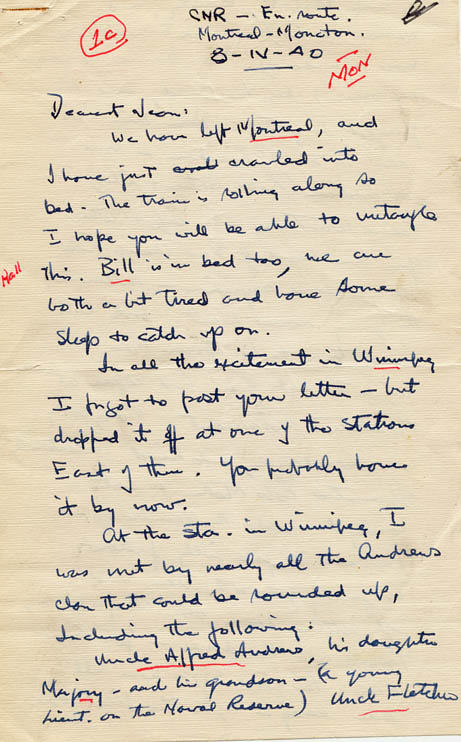 CNR - En. route.
1c
Montreal - Moncton.
8-IV-40
MON
Dearest Jean:
We have left Montreal, and
I have just crawled into
bed. The train is rolling along so
I hope you will be able to untangle
Hall
this. Bill is in bed too, we are
both a bit tired and have some
sleep to catch up on.
In all the excitement in Winnipeg
I forgot to post your letter - but
dropped it off at one of the stations
East of there. You probably have
it by now.
At the sta. in Winnipeg, I
was met by nearly all the Andrews
clan that could be rounded up,
Including the following:
Uncle Alfred Andrews, his daughter
Marjory - and his grandson - (a young
Lieut. on the Naval Reserve) Uncle Fletcher